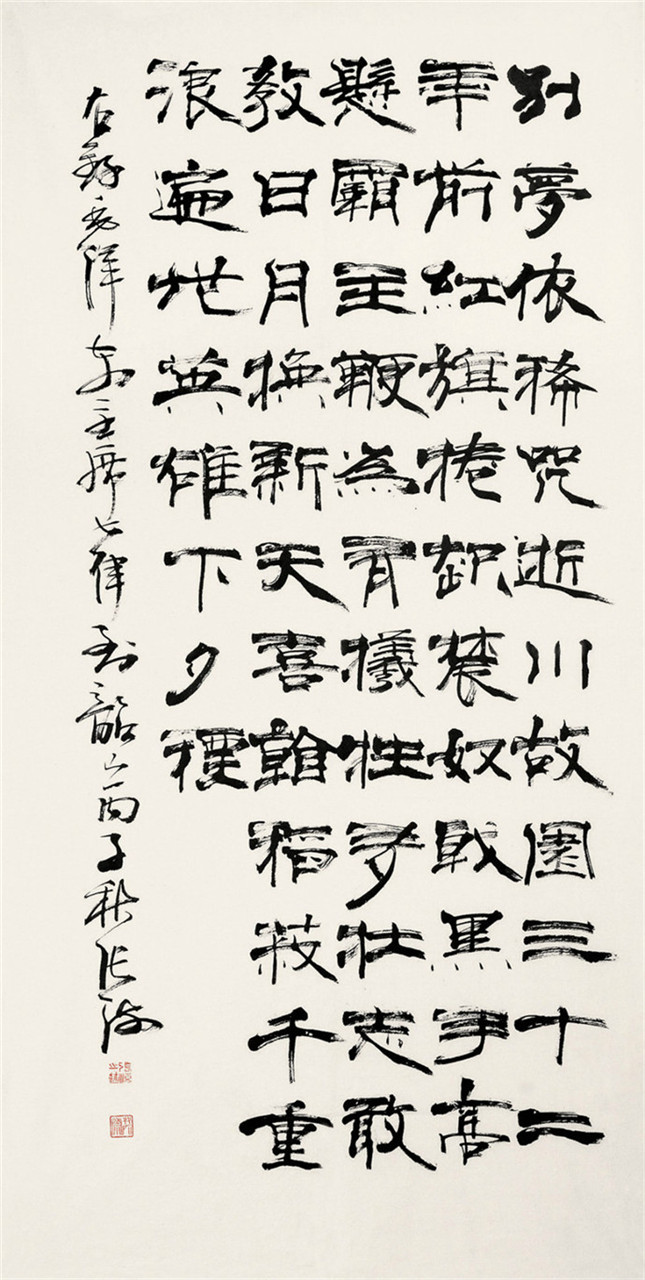 别夢依稀咒逝川故園三十二
年前紅旗捲起農奴戟黑手高
懸霸主鞭為有犧牲多壮志敢
教日月換新天喜看稻菽千重
浪遍地英雄下夕煙
右錄毛澤东主席七律到韶山丙子秋張海